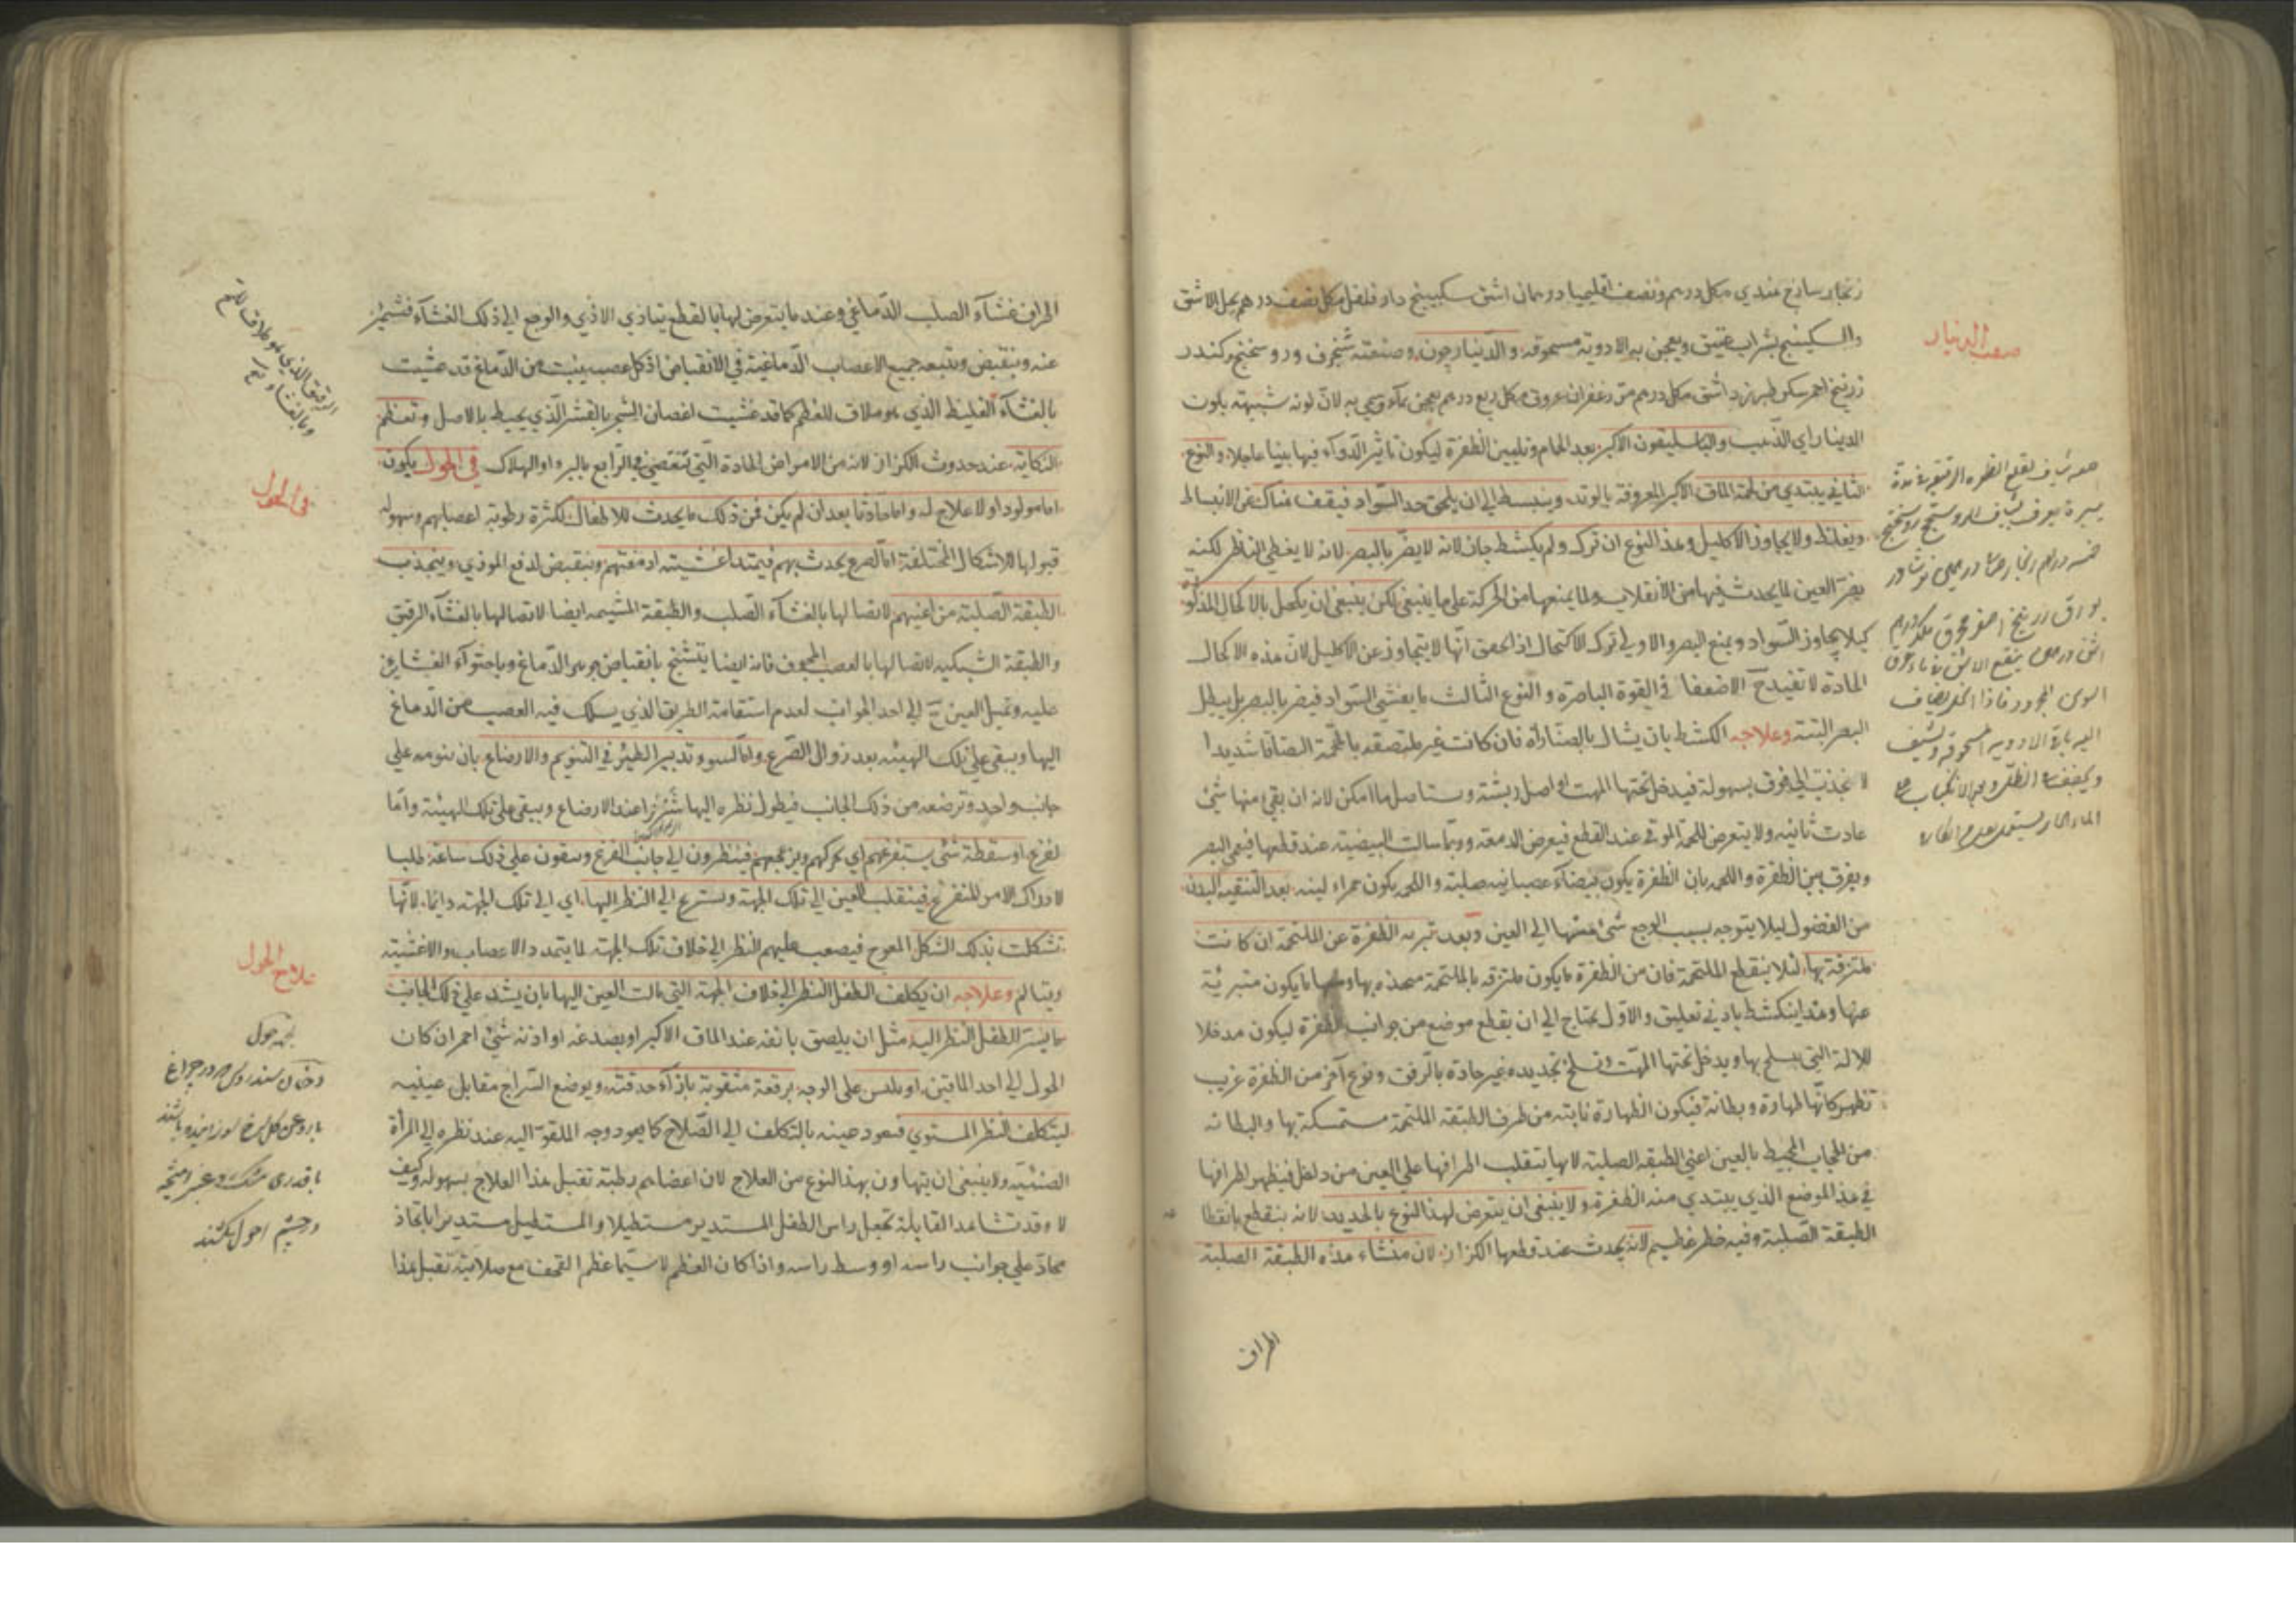 زنجار ساذج هندي مكل درهم ونصف اقليميا درهمان اشق سكبينج دار فلفل مكل نصف درهم يحل الاشق
والسكبينج بشراب عتيق ويعجن به الادوية مسحوقة والدينارجون وصنعته شنجرف وروسختج وكندر
زرنيخ احمر سكر طبرزد اشق مكل درهم مر زعفران عروق مكل ربع درهم يعجن بماء وسمي به لان لونه شبيه بلون
الدينار اي الذهب والباسليقون الاكبر بعد الحمام وتليين الظفرة ليكون تاثير الدواء فيها بينا عاجلا والنوع
الثاني يبتدي من لحمة الماق الاكبر المعروفة بالوتد وينبسط الي ان يلحق حد السواد فيقف هناك عن الانبساط
ويغلظ ولا يجاوز الاكليل وهذا النوع ان ترك ولم يكشط جاز لانه لا يضر بالبصر لانه لا يغطي الناظر لكنه
يضر العين لما يحدث فيها من الانقلاب ولما يمنعها من الحركة علي ما ينبغي لكن ينبغي ان يكحل بالاكحال المذكورة
كيلا يجاوز السواد ويمنع البصر والاولي ترك الاكتحال اذا تحقق انها لا يتجاوز عن الاكليل لان هذه الاكحال
الحادة لا تفيد ح الا ضعفا في القوة الباصرة والنوع الثالث ما يغشي السواد فيضر بالبصر بل يبطل
البصر البتة وعلاجه الكشط بان يشال بالصنارة فان كانت غير ملتصقة بالملتحمة التصاقا شديدا
انجذبت الي فوق بسهولة فيدخل تحتها المهت او اصل ريشة ويستاصل ما امكن لانه ان بقي منها شئ
عادت ثانية ولا يتعرض للحمة الموق عند القطع فيعرض الدمعة وربما سالت البيضية عند قطعها فيعمي البصر
ويفرق بين الظفرة واللحمة بان الظفرة يكون بيضاء عصبانية صلبة واللحمة يكون حمراء لينة بعد التنقية للبدن
من الفضول ليلا يتوجه بسبب الوجع شئ منها الي العين وبعد تبرية الظفرة عن الملتحمة ان كانت
ملتزقة بها لئلا ينقطع الملتحمة فان من الظفرة ما يكون ملتزقة بالملتحمة متحدة بها ومنها ما يكون متبرئة
عنها وهذا ينكشط بادني تعليق والاول يحتاج الي ان يقطع موضع من جوانب الظفرة ليكون مدخلا
للالة التي يسلخ بها ويدخل تحتها المهت وتسلخ بحديدة غير حادة بالرفق ونوع آخر من الظفرة غريب
تظهر كانها ظهارة وبطانة فيكون الظهارة نابتة من طرف الطبقة الملتحمة مستمسكة بها والبطانة
من الحجاب المحيط بالعين اعني الطبقة الصلبة لانها تتقلب اطرافها علي العين من داخل فيظهر اطرافها
في هذا الموضع الذي يبتدي منه الظفرة ولا ينبغي ان يتعرض لهذا النوع بالحديد لانه ينقطع بانقطاع
الطبقة الصلبة وفيه خطر عظيم لانه يحدث عند قطعها الكزاز لان منشاء هذه الطبقة الصلبة
اطراف
صفت الدينار
اطراف غشاء الصلب الدماغي وعند ما يتعرض لها بالقطع يتاذي الاذي والوجع الي ذلك الغشاء فتشمئز
عنه وينقبض ويتبعه جميع الاعصاب الدماغية في الانقباض اذ كل عصب ينبت من الدماغ قد غشيت
بالغشاء الغليظ الذي هو ملاق للعظم كما قد غشيت اغصان الشجر بالقشر الذي يحيط بالاصل وتعظم
النكاية عند حدوث الكزاز لانه من الامراض الحادة التي تنقضي في الرابع بالبرو او الهلاك في الحول يكون
اما مولودا ولا علاج له واما حادثا بعد ان لم يكن فمن ذلك ما يحدث للاطفال لكثرة رطوبة اعصابهم وسهولة
قبولها للاشكال المختلفة اما لصرع يحدث بهم فيمتد اغشية ادمغتهم وينقبض لدفع الموذي وينجذب
الطبقة الصلبة من اعينهم لاتصالها بالغشاء الصلب والطبقة المشيمه ايضا لاتصالها بالغشاء الرقيق
والطبقة الشبكيه لاتصالها بالعصب المجوف فانه ايضا يتشنج بانقباض جوهر الدماغ وباحتواء الغشاءين
عليه وتميل العين ح الي احد الجوانب لعدم استقامة الطريق الذي يسلك فيه العصب من الدماغ
اليها ويبقي علي تلك الهيئة بعد زوال الصرع واما لسوء تدبير الظئر في التنويم والارضاع بان ينومه علي
جانب واحد وترضعه من ذلك الجانب فيطول نظره اليها شزرا عند الارضاع ويبقي علي تلك الهيئة واما
لفزع او سقطة شئ يستفزعهم اي يحركهم ويزعجهم فينظرون الي جانب الفزع ويبقون علي ذلك ساعة طلبا
لادراك الامر المفزع فينقلب العين الي تلك الجهة ويسرع الي النظر اليها اي الي تلك الجهة دائما لانها
تشكلت بذلك الشكل المعوج فيصعب عليهم النظر الي خلاف تلك الجهة لما يتمدد الاعصاب والاغشية
ويتالم وعلاجه ان يكلف الطفل النظر الي خلاف الجهة التي مالت العين اليها بان يشد علي ذلك الجانب
ما يسر الطفل النظر اليه مثل ان يلصق بانفه عند الماق الاكبر او بصدغه او اذنه شئ احمر ان كان
الحول الي احد الماقين او يلبس علي الوجه برقعة مثقوبة بازاء حدقته ويوضع السراج مقابل عينيه
ليتكلف النظر المستوي فيعود عينه بالتكلف الي الصلاح كما يعود وجه الملقو اليه عند نظره الي المرآة
الصينية ولا ينبغي ان يتهاون بهذا النوع من العلاج لان اعضاءهم رطبة تقبل هذا العلاج بسهولة وكيف
لا وقد تشاهد القابلة تجعل راس الطفل المستدير مستطيلا والمستطيل مستديرا باتخاذ
مخاد علي جوانب راسه او وسط راسه واذا كان العظم لا سيما عظم القحف مع صلابته تقبل هذا
الرقيق الذي هو ملاق للام
وبالغشاء
في الحول
علاج الحول
جهة حول